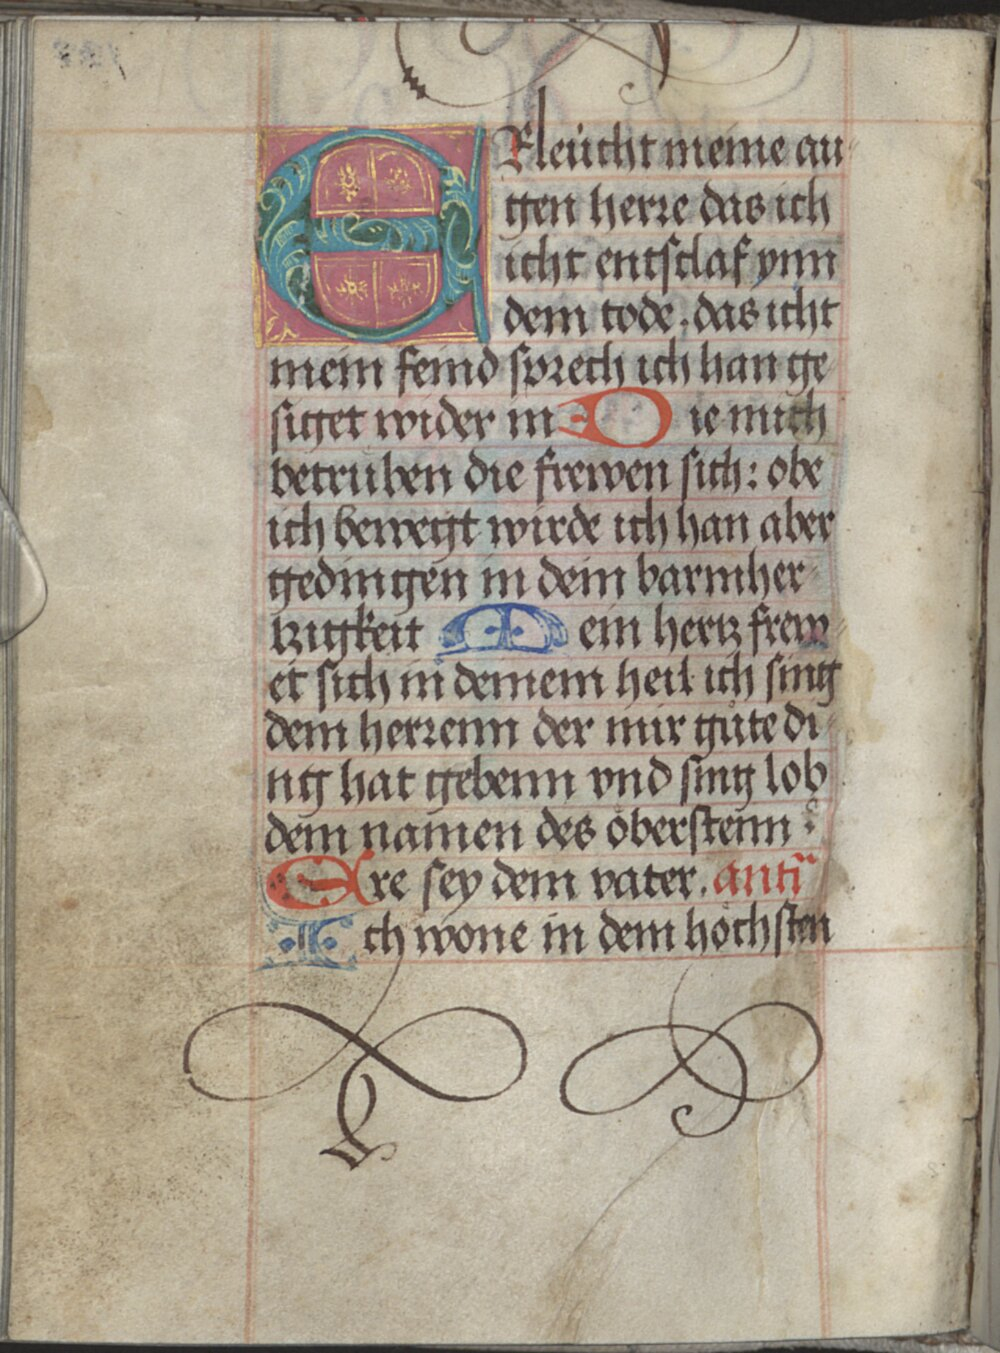 ERleücht meine au
gen herre das ich
icht entschlaf ynn
dem tode. das icht
mein feind sprech ich han ge
siget wider in Die mich
betruben die frewen sich: obe
ich bewegt wirde ich han aber
gedingen in dein barmher
tzigkeit Mein hertz frew
et sich in deinem heil ich sing
dem herrenn der mir gůte di
ng hat gebenn vnd sing lob
dem namen des öberstenn :
Ere sey dem vater. anti
Ich wone in dem höchsten